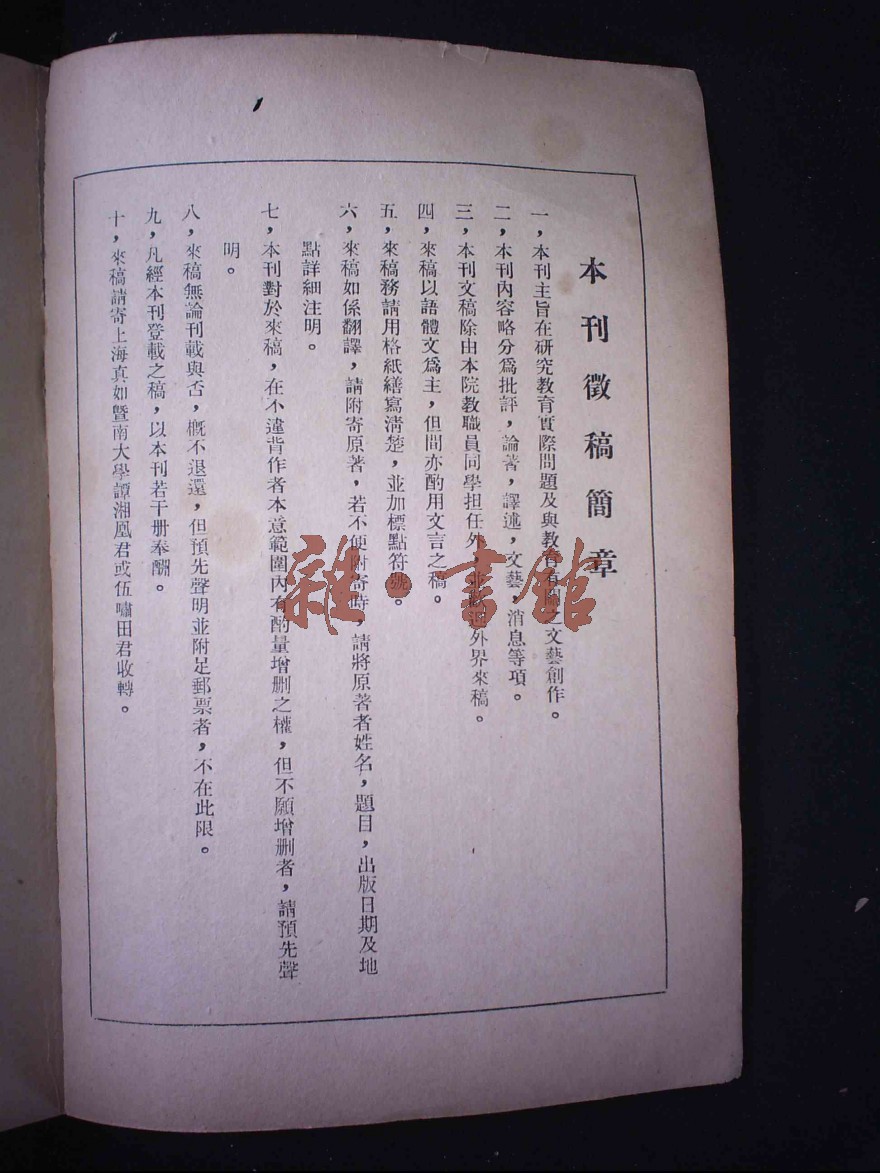 本刊徵稿簡章
一，本刊主旨在研究教育實際問題及與教育有關之文藝創作。
二，本刊內容略分爲批評，論著，譯述，文藝，消息等項。
三，本刊文稿除由本院教職員同學担任外，並歡迎外界來稿。
四，來稿以語體文爲主，但間亦酌用文言之稿。
五，來稿務請用格紙繕寫清楚，並加標點符號。
六，來稿如係翻譯，請附寄原著，若不便附寄時，請將原著者姓名，題目，出版日期及地
點詳細注明。
七，本刊對於來稿，在不違背作者本意範圍內有酌量增删之權，但不願增删者，請預先聲
明。
八，來稿無論刊載與否，概不退還，但預先聲明並附足郵票者，不在此限。
九，凡經本刊登載之稿，以本刊若干册奉酬。
十，來稿請寄上海真如暨南大學譚湘凰君或伍嘯田君收轉。
雜·書館